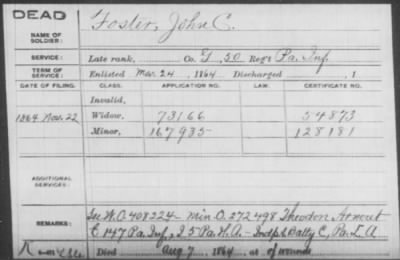 DEAD
NAME OF SOLDIER: Foster, John C.
SERVICE: Late rank, Co. G, 50 Reg't Pa. Inf.
TERM OF SERVICE: Enlisted Mar. 24, 1864 Discharged , 1
DATE OF FILING. CLASS. APPLICATION NO. LAW. CERTIFICATE NO.
Invalid,
1864 Nov. 22 Widow, 73166 54873
Minor, 167935 128181
ADDITIONAL SERVICES:
REMARKS: See W.O. 408224 - Min O. 272498 Theodore
C 147 Pa. Inf., 25 Pa. H.A. - Indpt Batty C, Pa. L.A
Died Aug 7, 1864, at of wounds